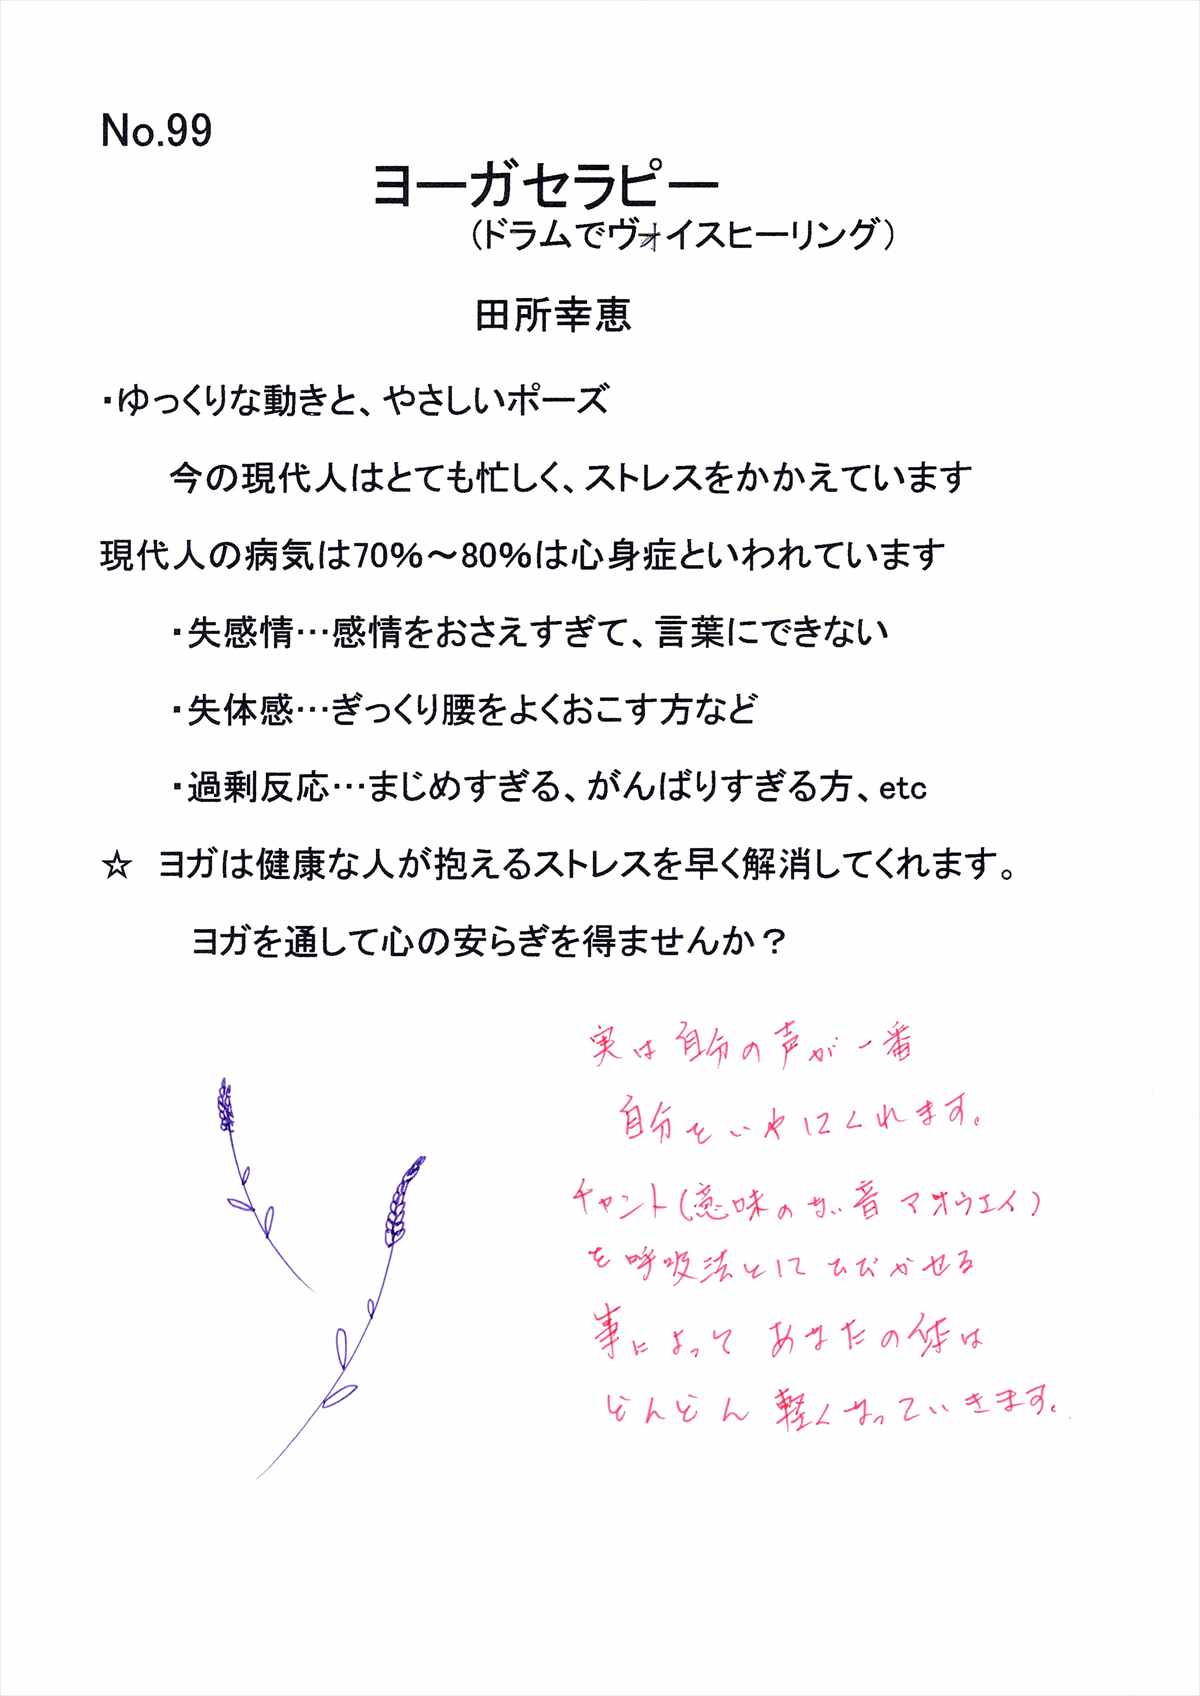 No.99
ヨーガセラピー
（ドラムでヴォイスヒーリング）
田所幸恵
・ゆっくりな動きと、やさしいポーズ
今の現代人はとても忙しく、ストレスをかかえています
現代人の病気は70％～80％は心身症といわれています
・失感情…感情をおさえすぎて、言葉にできない
・失体感…ぎっくり腰をよくおこす方など
・過剰反応…まじめすぎる、がんばりすぎる方、etc
☆　ヨガは健康な人が抱えるストレスを早く解消してくれます。
ヨガを通して心の安らぎを得ませんか？
実は自分の声が一番
自分をいやしてくれます。
チャント（意味のない音 マオウエイ）
を呼吸法と共に ひびかせる
事によって あなたの体は
どんどん 軽くなっていきます。